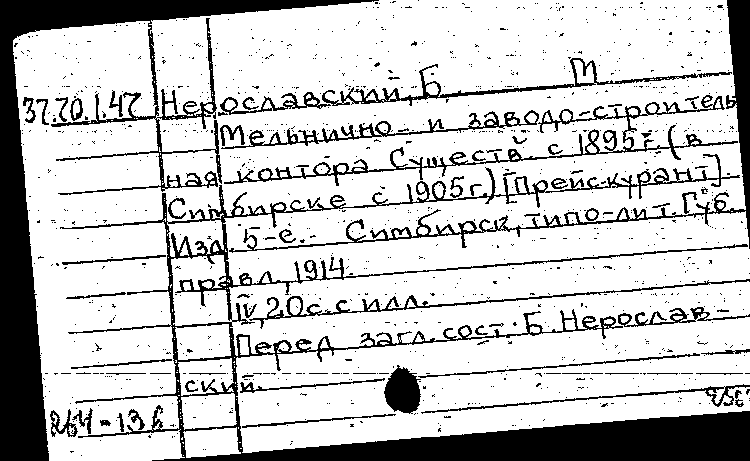 37.70.1.47 Нерославский, Б. М
Мельнично- и заводо-строитель
ная контора. Существ. с 1895 г. (в
Симбирске с 1905 г.) [Прейс-курант].
Изд. 5-е. - Симбирск, типо-лит. Губ.
правл., 1914.
IV, 20 с. с илл.
Перед загл. сост.: Б. Нерослав-
ский.
264-136